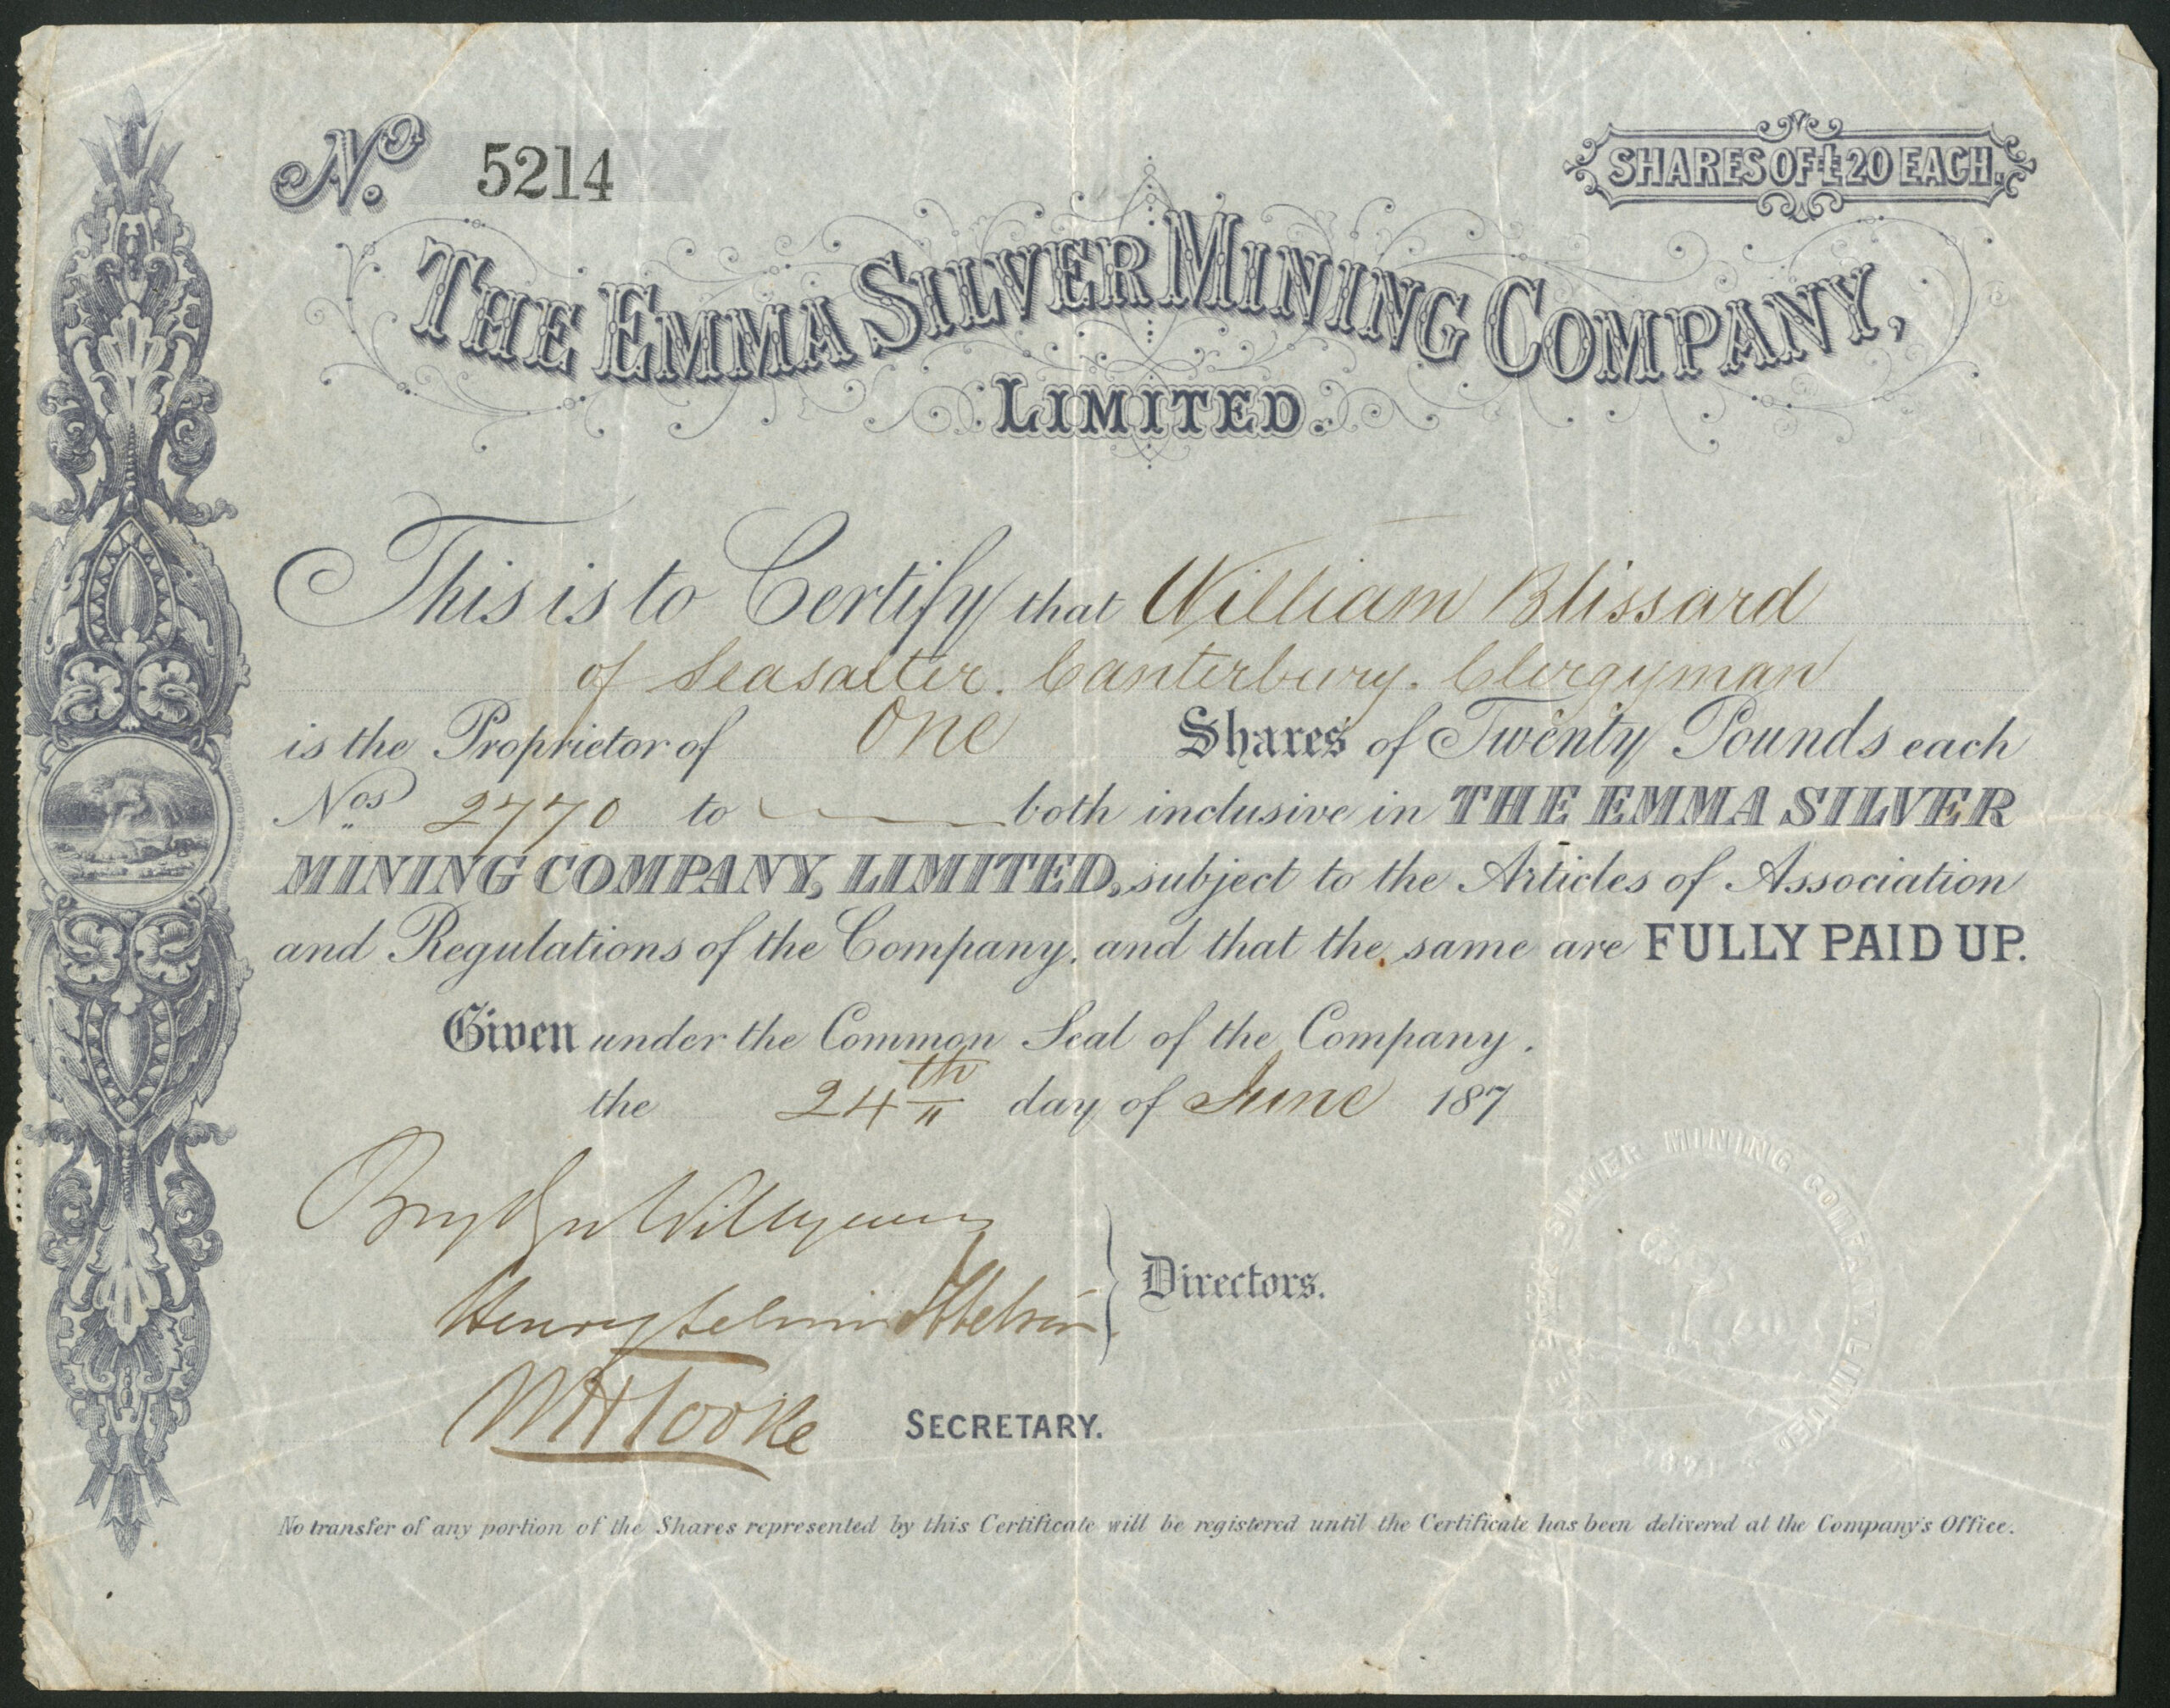 No. 5214
SHARES OF £20 EACH.
THE EMMA SILVER MINING COMPANY,
LIMITED.
This is to Certify that William Blissard
of Seasalter. Canterbury. Clergyman
is the Proprietor of One Shares of Twenty Pounds each
Nos 2770 to both inclusive in THE EMMA SILVER
MINING COMPANY, LIMITED, subject to the Articles of Association
and Regulations of the Company, and that the same are FULLY PAID UP.
Given under the Common Seal of the Company.
the 24th day of June 187
Directors.
WH Tooke SECRETARY.
SILVER MINING COMPY. LIMITED
1871
No transfer of any portion of the Shares represented by this Certificate will be registered until the Certificate has been delivered at the Company's Office.